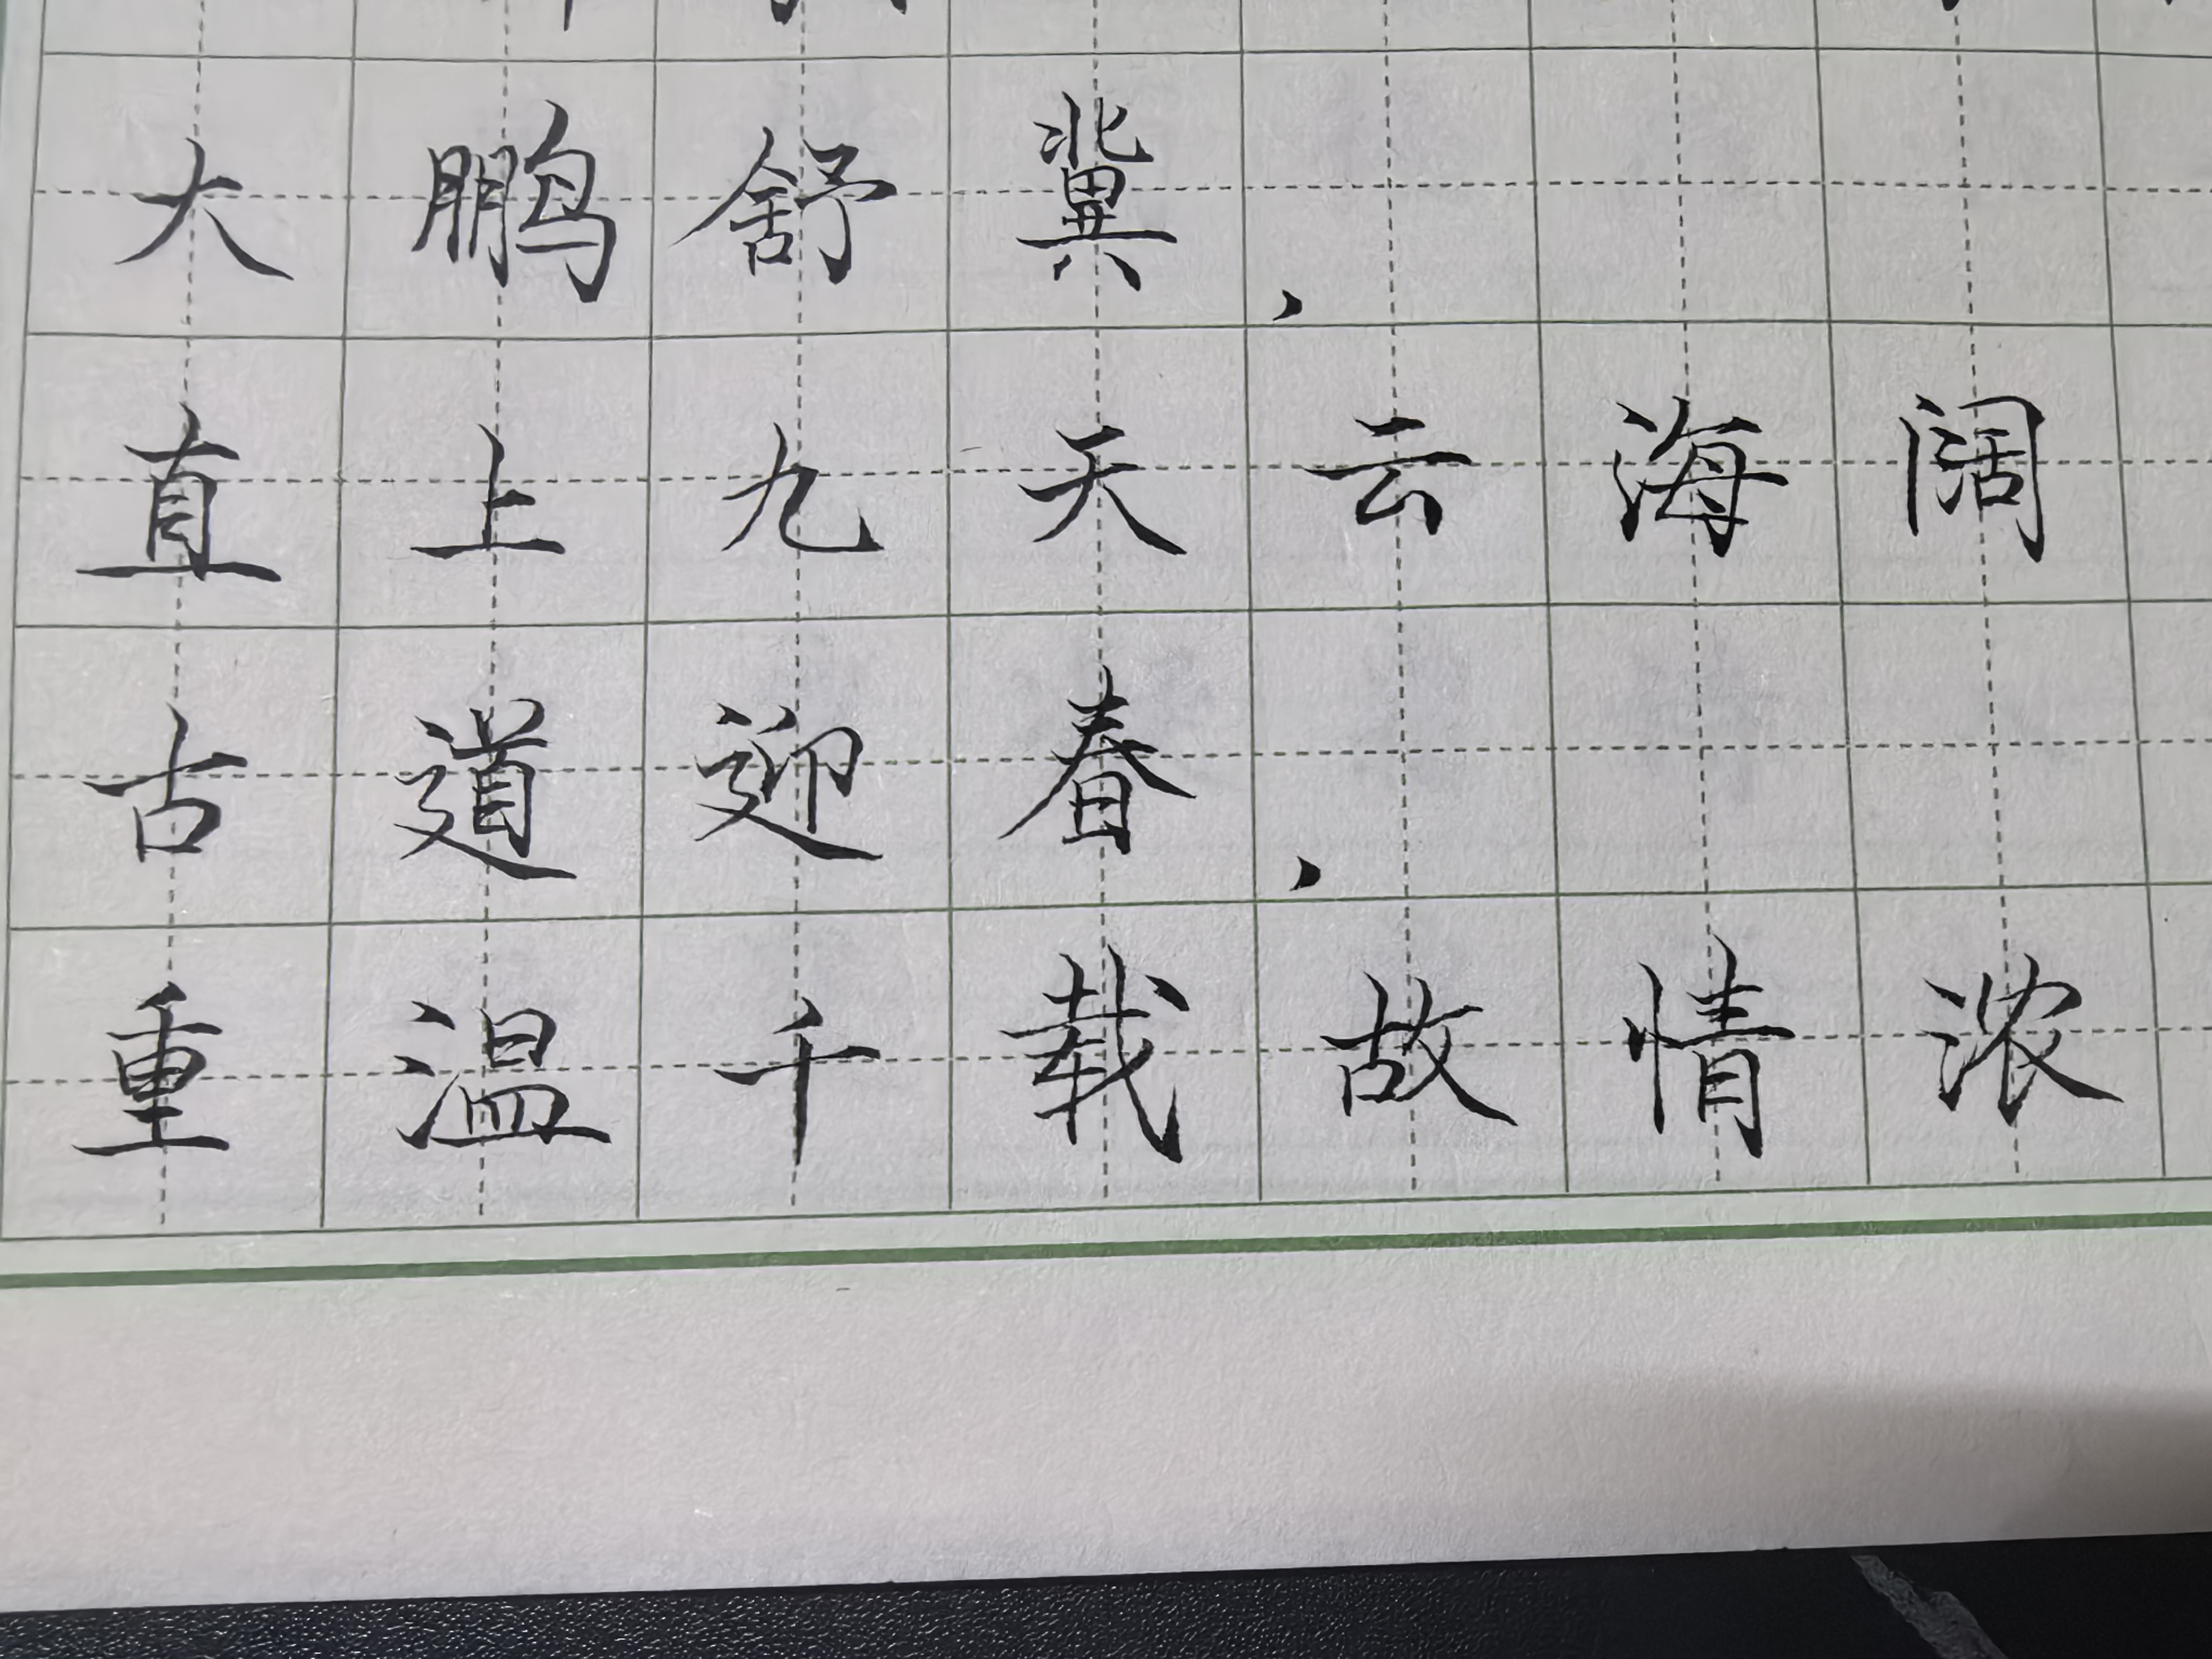 大鹏舒冀，
直上九天云海阔
古道迎春，
重温千载故情浓